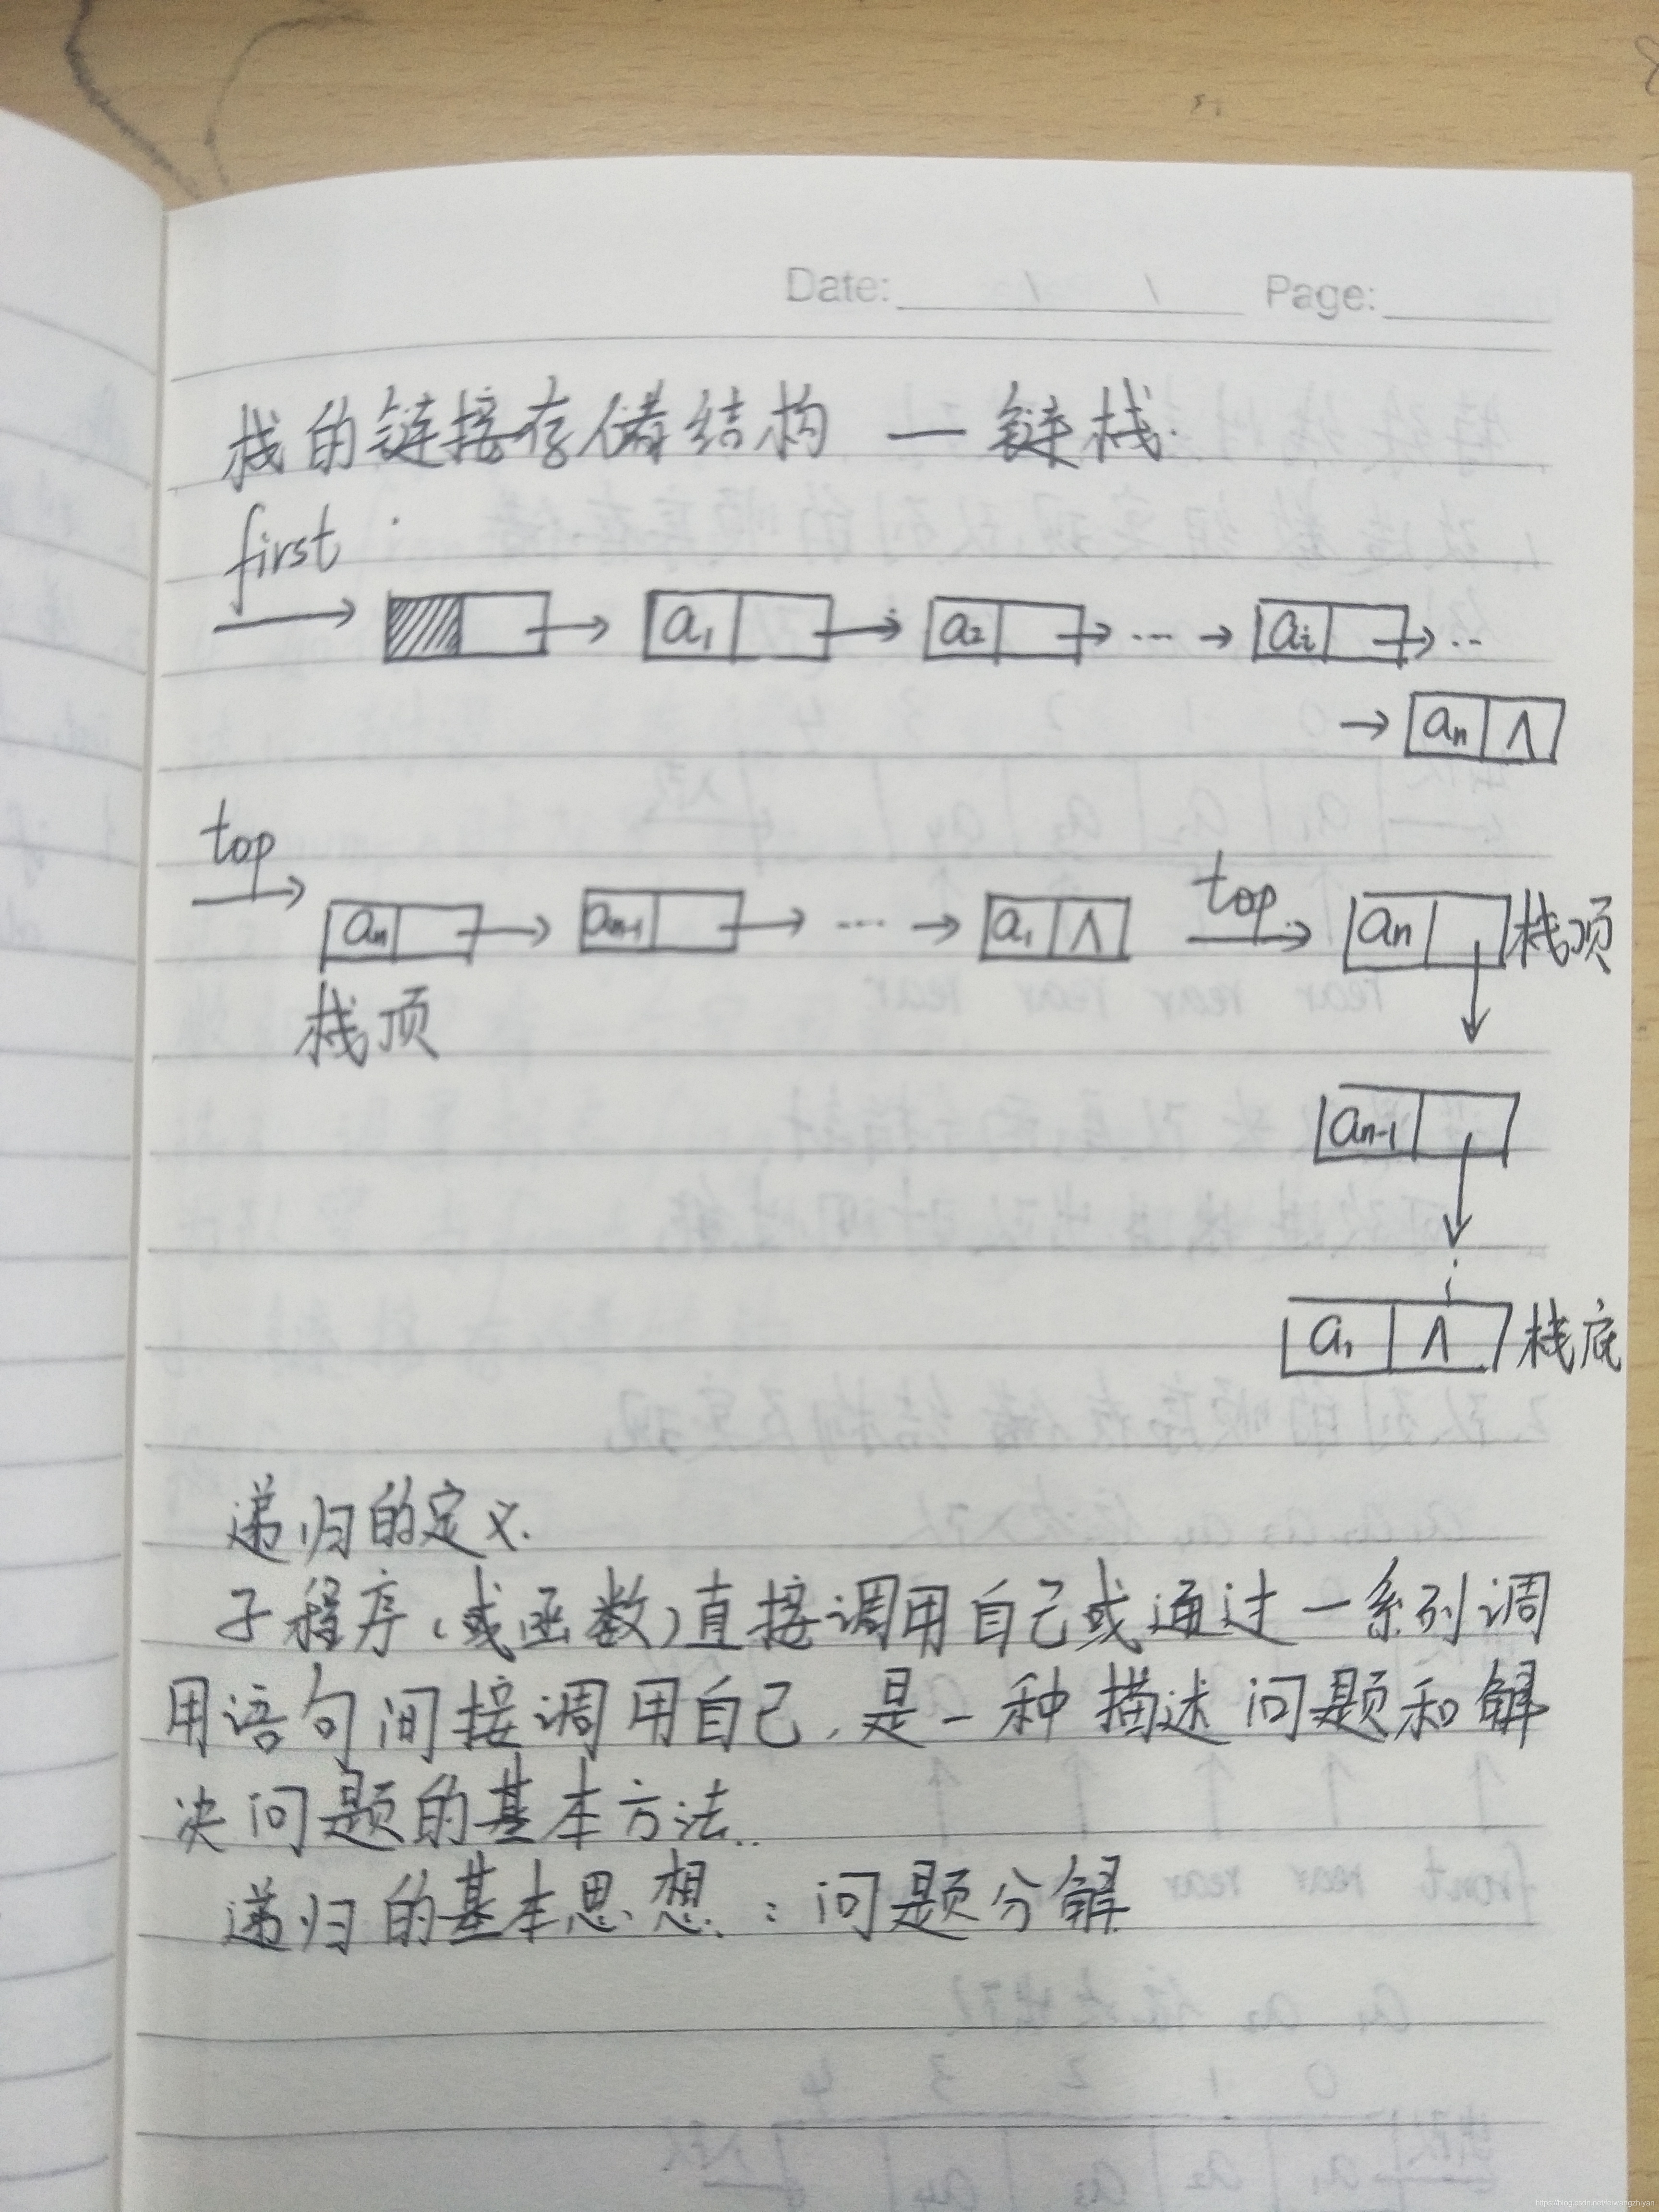 Date: / / Page:
栈的链接存储结构 — 链栈.
first
a₁ a₂ ... aᵢ ...
aₙ ∧
top
aₙ aₙ₋₁ .... a₁ ∧ top aₙ 栈顶
栈顶
aₙ₋₁
a₁ ∧ 栈底
递归的定义.
子程序(或函数)直接调用自己或通过一系列调
用语句间接调用自己,是一种描述问题和解
决问题的基本方法..
递归的基本思想:问题分解